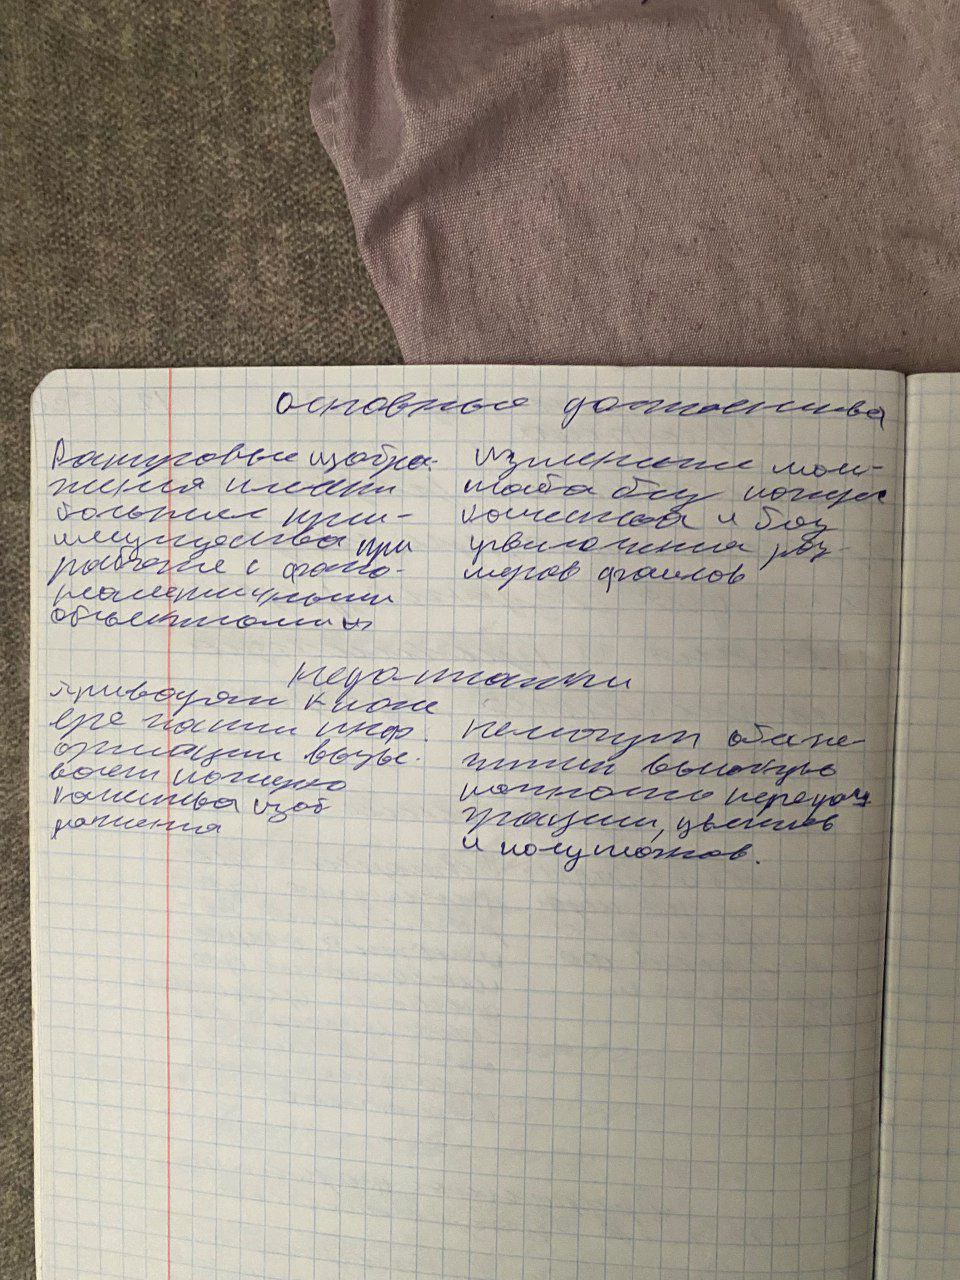 основные достоинства
Растровые изобра-
жения имеют
большие преи-
имущества при
работе с фото-
реалистичными
объектами
изменение мас-
штаба без потери
качества и без
увеличения раз-
меров файлов
Недостатки
приводят к пот
ере части инф.
ормации вызы.
вает потерю
качества изоб
ражения
немогут обеспе-
чить высокую
точность передач
градации, цветов
и полутонов.